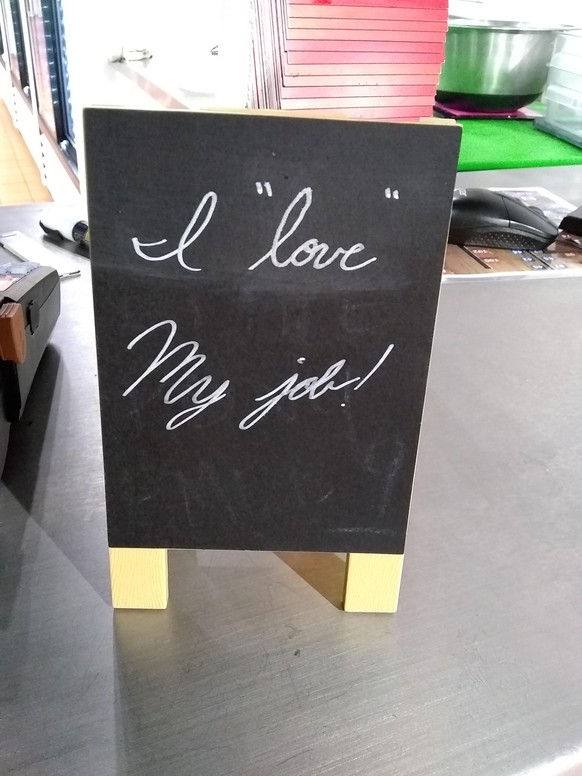 I "love"
My job!